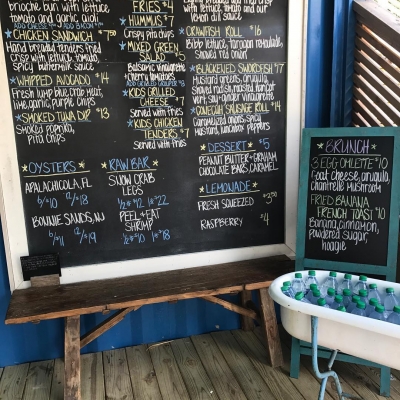 brioche bun with lettuce
tomato and garlic aioli
CHICKEN SANDWICH $7.50
Hand breaded tenders fried
crisp with lettuce, tomato,
spicy buttermilk sauce
WHIPPED AVOCADO $14
Fresh lump blue crab meat,
lime, garlic, purple chips
SMOKED TUNA DIP $13
smoked paprika,
pita chips
FRIES $4
HUMMUS $7
Crispy pita chips
MIXED GREEN
SALAD $5
Balsamic vinaigrette
cherry tomatoes
KIDS GRILLED
CHEESE $7
Served with fries
KIDS CHICKEN
TENDERS $7
Served with fries
with lettuce, tomato and our
lemon dill sauce
CRAWFISH ROLL $16
Bibb lettuce, tarragon remoulade,
shaved red onion
BLACKENED SWORDFISH $17
Mustard greens, arugula,
Shaved radish, roasted
soy + ginger vinaigrette
CONECUH SAUSAGE ROLL $14
Caramelized onions, spicy
mustard, peppers
DESSERT $5
PEANUT BUTTER + GRAHAM
CHOCOLATE BARS, CARAMEL
LEMONADE
FRESH SQUEEZED $3.50
RASPBERRY $4
OYSTERS
APALACHICOLA, FL
6/$10 12/$18
BONNIE SANDS, NJ
6/$11 12/$19
RAW BAR
SNOW CRAB
LEGS
1/2# $12 1# $22
PEEL + EAT
SHRIMP
1/2# $10 1# $18
BRUNCH
3 EGG OMLETTE $10
Goat cheese, arugula,
Chantrelle mushroom
FRIED BANANA
FRENCH TOAST $10
Banana, cinnamon,
powdered sugar,
hoagie